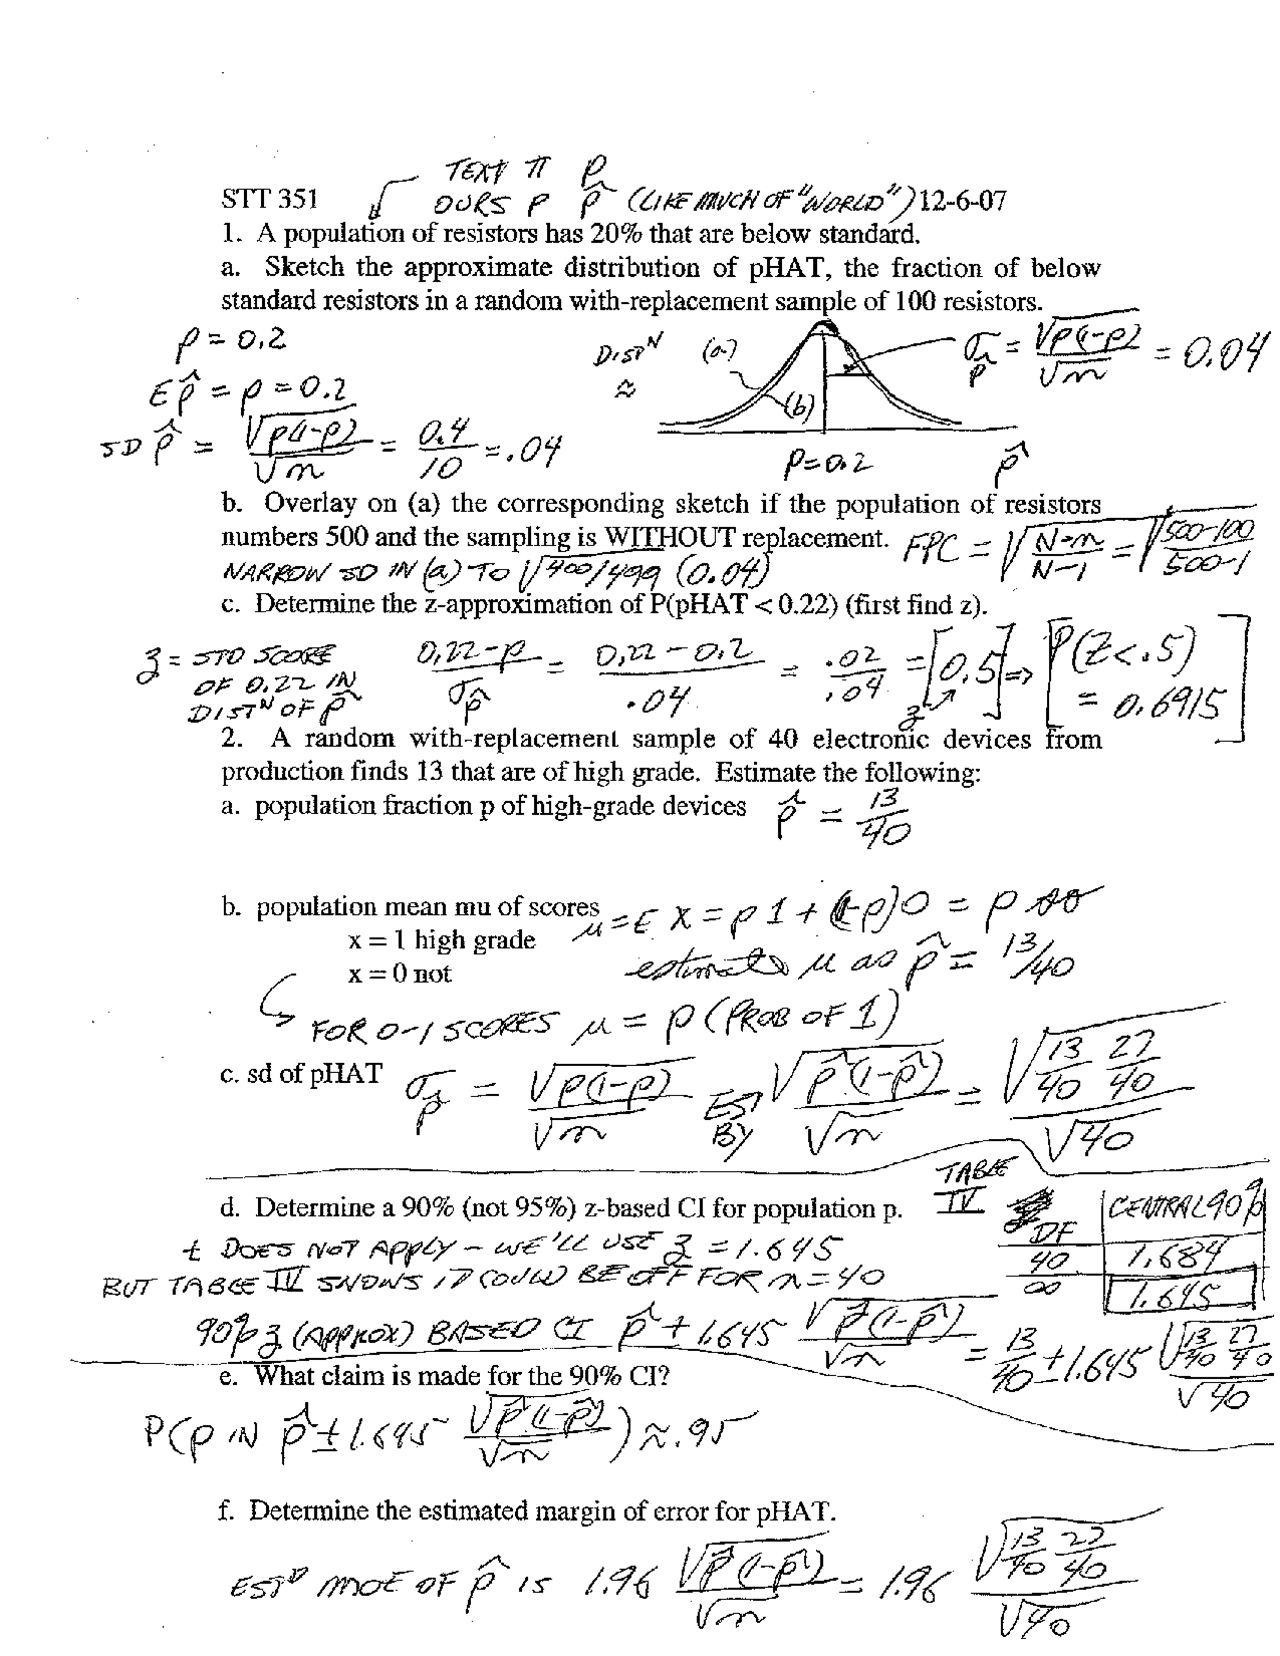 TEXT π p
STT 351 OURS p p̂ (LIKE MUCH OF "WORLD") 12-6-07
1. A population of resistors has 20% that are below standard.
a. Sketch the approximate distribution of pHAT, the fraction of below
standard resistors in a random with-replacement sample of 100 resistors.
p = 0.2
DIST^N ≈ (a) (b) σ_p̂ = √p(1-p) / √n = 0.04
E p̂ = p = 0.2
SD p̂ = √p(1-p) / √n = 0.4 / 10 = .04
p=0.2 p̂
b. Overlay on (a) the corresponding sketch if the population of resistors
numbers 500 and the sampling is WITHOUT replacement. FPC = √(N-n / N-1) = √(500-100 / 500-1)
NARROW SD IN (a) TO √400/499 (0.04)
c. Determine the z-approximation of P(pHAT < 0.22) (first find z).
z = STD SCORE OF 0.22 IN DIST^N OF p̂ 0.22-p / σ_p̂ = 0.22-0.2 / .04 = .02 / .04 = [0.5] z ⇒ [P(Z<.5) = 0.6915]
2. A random with-replacement sample of 40 electronic devices from
production finds 13 that are of high grade. Estimate the following:
a. population fraction p of high-grade devices p̂ = 13 / 40
b. population mean mu of scores μ = E X = p 1 + (1-p) 0 = p
x = 1 high grade
x = 0 not estimate μ as p̂ = 13/40
FOR 0-1 SCORES μ = p (PROB OF 1)
c. sd of pHAT σ_p̂ = √p(1-p) / √n EST BY √p̂(1-p̂) / √n = √(13/40 27/40) / √40
TABLE IV
d. Determine a 90% (not 95%) z-based CI for population p.
DF CENTRAL 90%
40 1.684
∞ 1.645
t DOES NOT APPLY - WE'LL USE z = 1.645
BUT TABLE IV SHOWS IT COULD BE OFF FOR n = 40
90% z (APPROX) BASED CI p̂ ± 1.645 √p̂(1-p̂) / √n = 13/40 ± 1.645 √(13/40 27/40) / √40
e. What claim is made for the 90% CI?
P(p IN p̂ ± 1.645 √p̂(1-p̂) / √n) ≈ .95
f. Determine the estimated margin of error for pHAT.
EST^D MOE OF p̂ IS 1.96 √p̂(1-p̂) / √n = 1.96 √(13/40 27/40) / √40